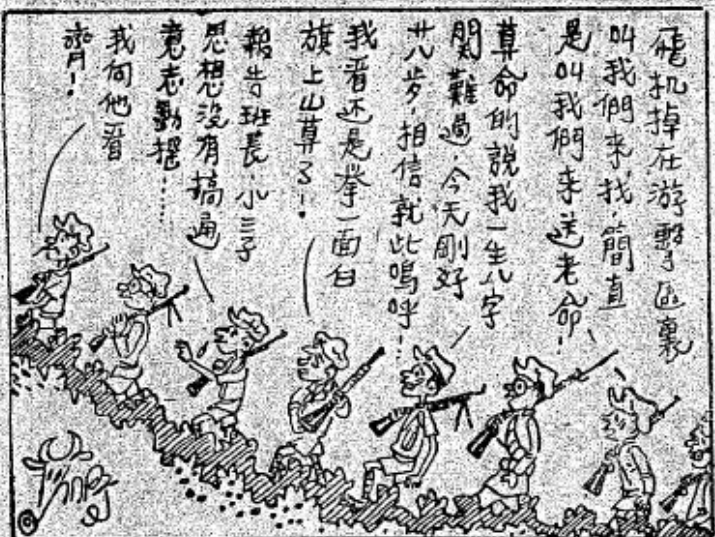 飛机掉在游擊區裏
叫我們來找,簡直
是叫我們來送老命!
算命的說我一生八字
關難過,今天剛好
廿八步,相信就此嗚呼!
我看还是举一面白
旗上山算了!
報告班長,小三子
思想没有搞通
意志動摇……
我向他看
齊!